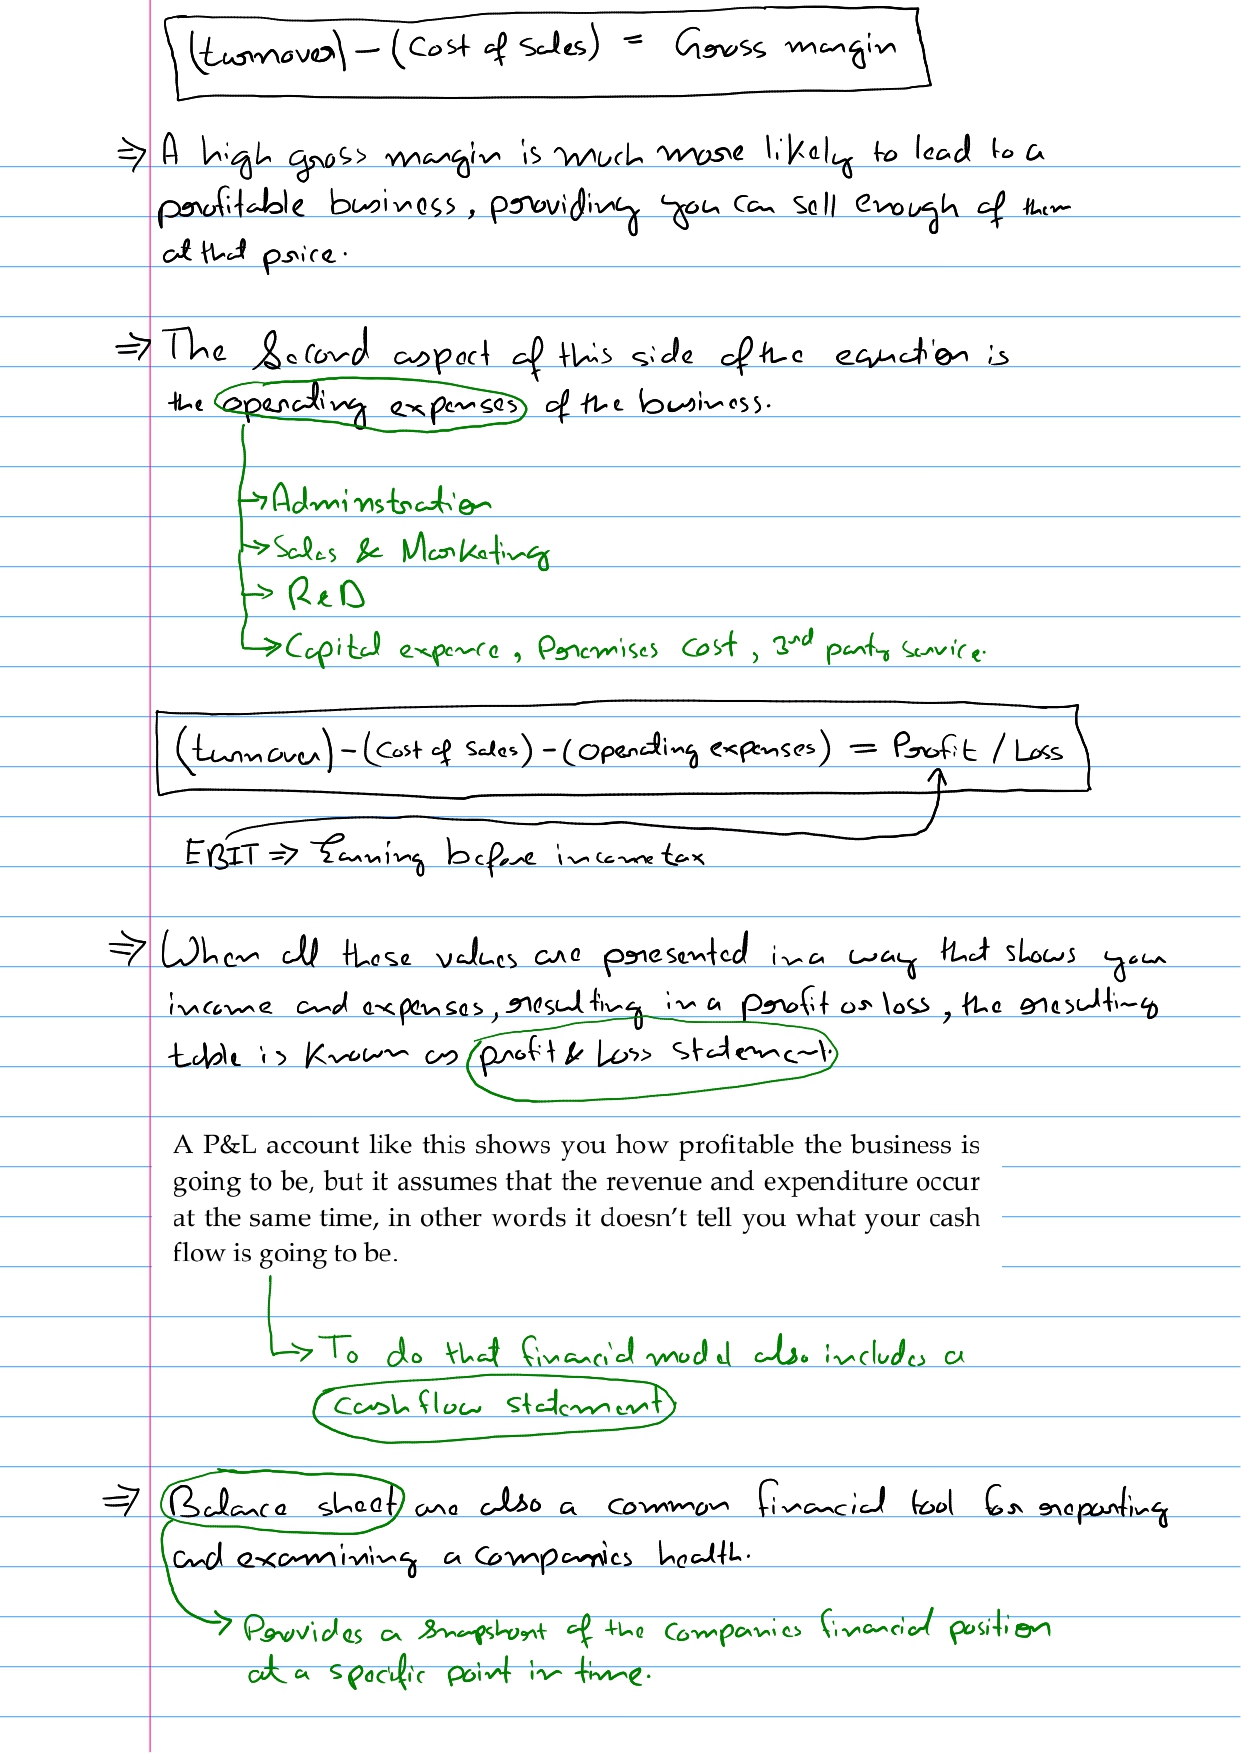 (turnover) - (Cost of sales) = Gross margin
⇒ A high gross margin is much more likely to lead to a
profitable business, providing you can sell enough of them
at that price.
⇒ The Second aspect of this side of the equation is
the operating expenses of the business.
→ Adminstration
→ Sales & Marketing
→ R&D
→ Capital expence, Premises cost, 3rd party service.
(turnover) - (Cost of sales) - (operating expenses) = Profit / Loss
EBIT ⇒ Earning before income tax
⇒ When all these values are presented in a way that shows your
income and expenses, resulting in a profit or loss, the resulting
table is known as profit & Loss statement.
A P&L account like this shows you how profitable the business is
going to be, but it assumes that the revenue and expenditure occur
at the same time, in other words it doesn't tell you what your cash
flow is going to be.
→ To do that financial model also includes a
cashflow statement
⇒ Balance sheet are also a common financial tool for reporting
and examining a companies health.
→ Provides a snapshot of the companies financial position
at a specific point in time.